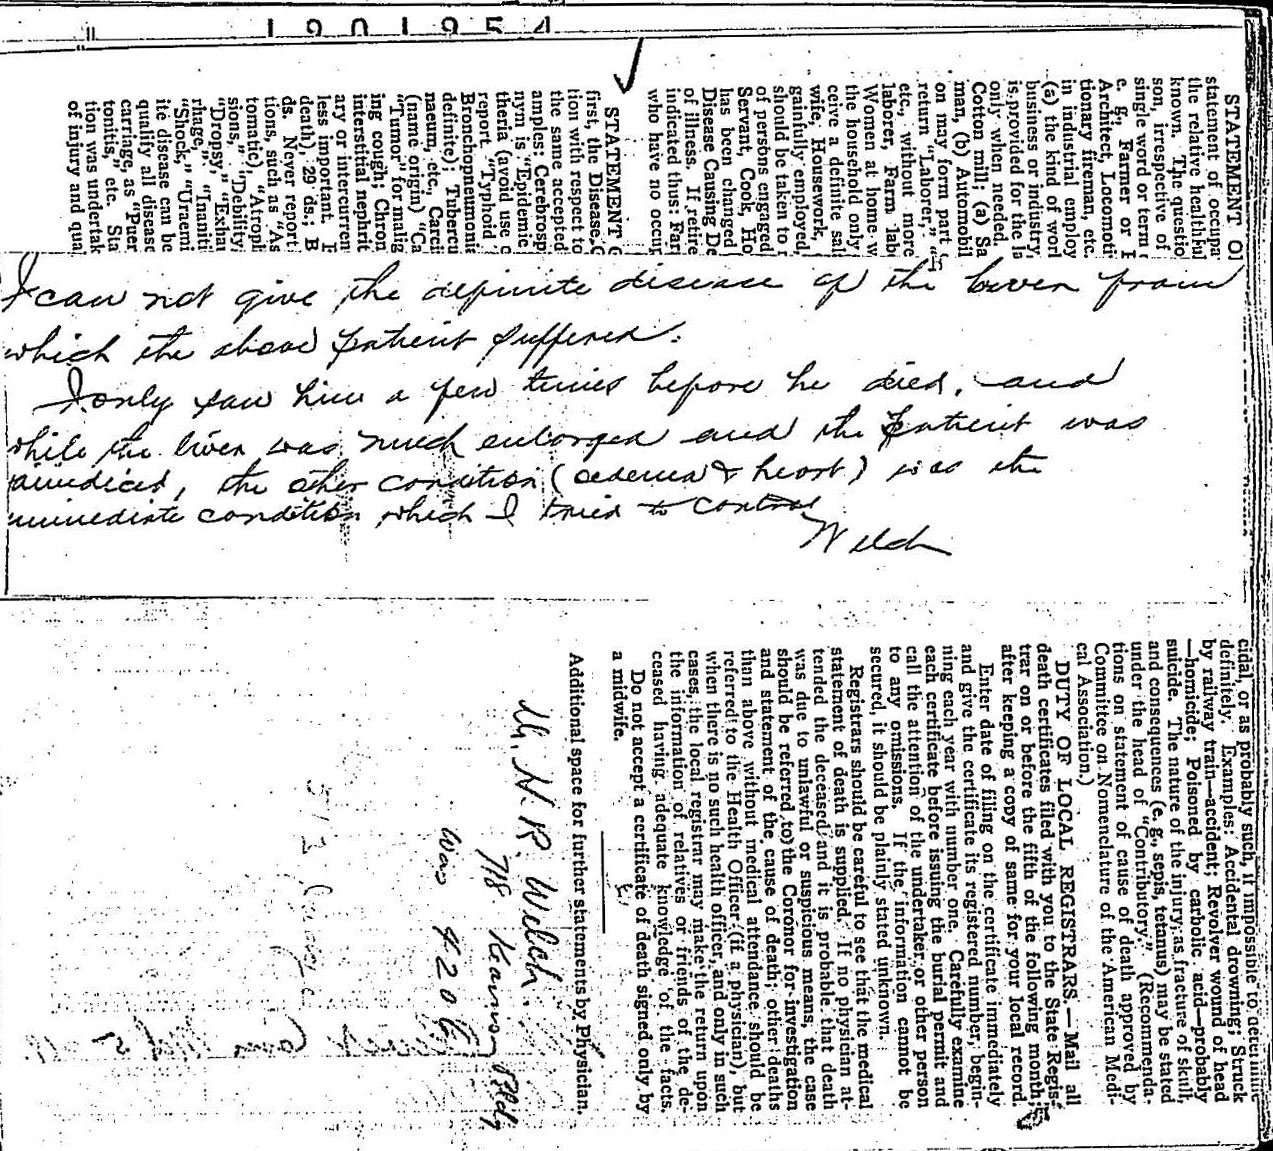 1901954
STATEMENT OF
statement of occupa
the relative healthful
known. The questio
son, irrespective of
single word or term
e. g., Farmer or P
Architect, Locomoti
tionary fireman, etc.
in industrial employ
(a) the kind of worl
business or industry,
is provided for the la
only when needed.
Cotton mill; (a) Sa
man, (b) Automobil
on may form part
return "Laborer,"
etc., without more
laborer, Farm lab
Women at home w
the household only
ceive a definite sal
wife, Housework,
gainfully employed,
should be taken to r
of persons engaged
Servant, Cook, Ho
has been changed
Disease Causing De
of illness. If retire
indicated thus: Far
who have no occup
STATEMENT
first, the Disease
tion with respect to
the same accepted
amples: Cerebrosp
nym is "Epidemic
theria (avoid use
report "Typhoid
Bronchopneumoni
definite); Tubercu
naeum, etc., Carci
(name origin) "Ca
"Tumor" for malig
ing cough; Chron
interstitial nephrit
ary or intercurren
less important. E
death), 29 ds.; B
ds. Never report
tions, such as "As
tomatic), "Atroph
sions," "Debility
"Dropsy," "Exhau
rhage," "Inaniti
"Shock," "Uraemi
ite disease can be
qualify all disease
carriage, as "Puer
tonitis," etc. Sta
tion was undertak
of injury and qual
I can not give the definite disease of the liver from
which the above patient suffered.
I only saw him a few times before he died, and
while the liver was much enlarged and the patient was
jaundiced, the other condition (oedema & heart) was the
immediate condition which I tried to control
Welch
cidal, or as probably such, if impossible to determine
definitely. Examples: Accidental drowning; Struck
by railway train—accident; Revolver wound of head
—homicide; Poisoned by carbolic acid—probably
suicide. The nature of the injury, as fracture of skull,
and consequences (e. g., sepis, tetanus) may be stated
under the head of "Contributory." (Recommenda-
tions on statement of cause of death approved by
Committee on Nomenclature of the American Medi-
cal Association.)
DUTY OF LOCAL REGISTRARS.—Mail all
death certificates filed with you to the State Regis-
trar on or before the fifth of the following month;
after keeping a copy of same for your local record.
Enter date of filing on the certificate immediately
and give the certificate its registered number, begin-
ning each year with number one. Carefully examine
each certificate before issuing the burial permit and
call the attention of the undertaker or other person
to any omissions. If the information cannot be
secured, it should be plainly stated unknown.
Registrars should be careful to see that the medical
statement of death is supplied. If no physician at-
tended the deceased and it is probable that death
was due to unlawful or suspicious means, the case
should be referred to the Coronor for investigation
and statement of the cause of death; other deaths
than above without medical attendance should be
referred to the Health Officer (if a physician), but
when there is no such health officer, and only in such
cases, the local registrar may make the return upon
the information of relatives or friends of the de-
ceased having adequate knowledge of the facts.
Do not accept a certificate of death signed only by
a midwife.
Additional space for further statements by Physician.
W. R. Welch.
718 Bldg
Was 4206